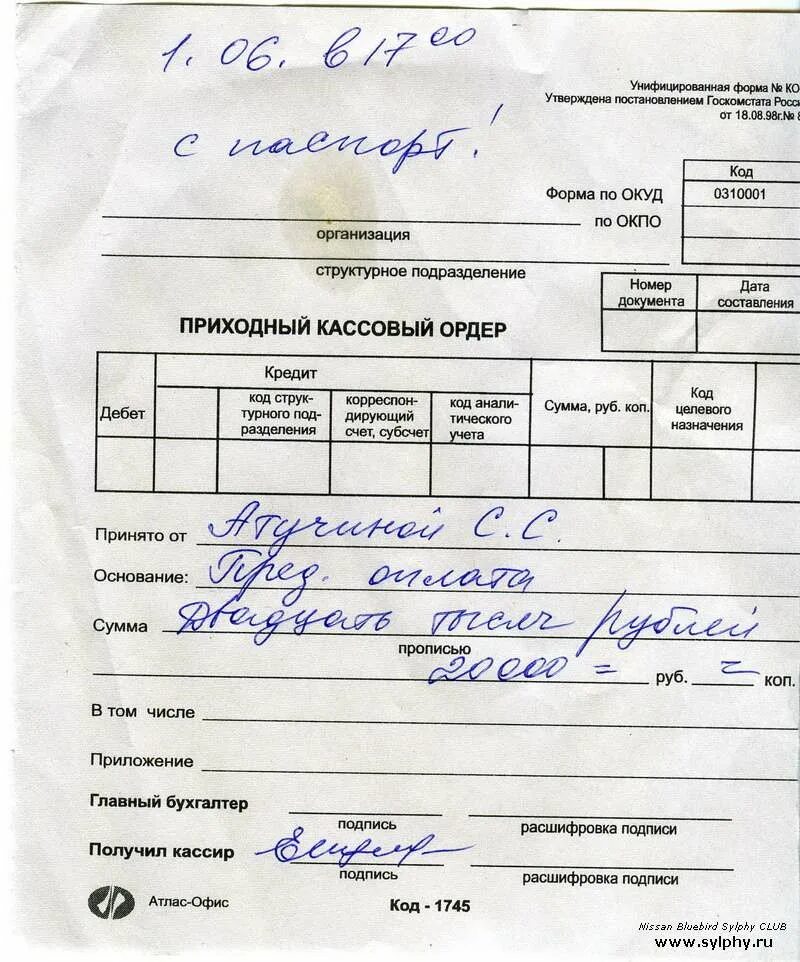 1. 06. в 17 00
с паспорт!
Унифицированная форма № КО
Утверждена постановлением Госкомстата Росси
от 18.08.98г.№ 8
Код
Форма по ОКУД 0310001
по ОКПО
организация
структурное подразделение
Номер документа
Дата составления
ПРИХОДНЫЙ КАССОВЫЙ ОРДЕР
Дебет
Кредит
код струк-
турного под-
разделения
корреспон-
дирующий
счет, субсчет
код анали-
тического
учета
Сумма, руб. коп.
Код
целевого
назначения
Принято от Атучиной С. С.
Основание: Пред. оплата
Сумма Двадцать тысяч рублей
прописью
20000 = руб. коп.
В том числе
Приложение
Главный бухгалтер
подпись расшифровка подписи
Получил кассир
подпись расшифровка подписи
Атлас-Офис Код - 1745
Nissan Bluebird Sylphy CLUB
www.sylphy.ru